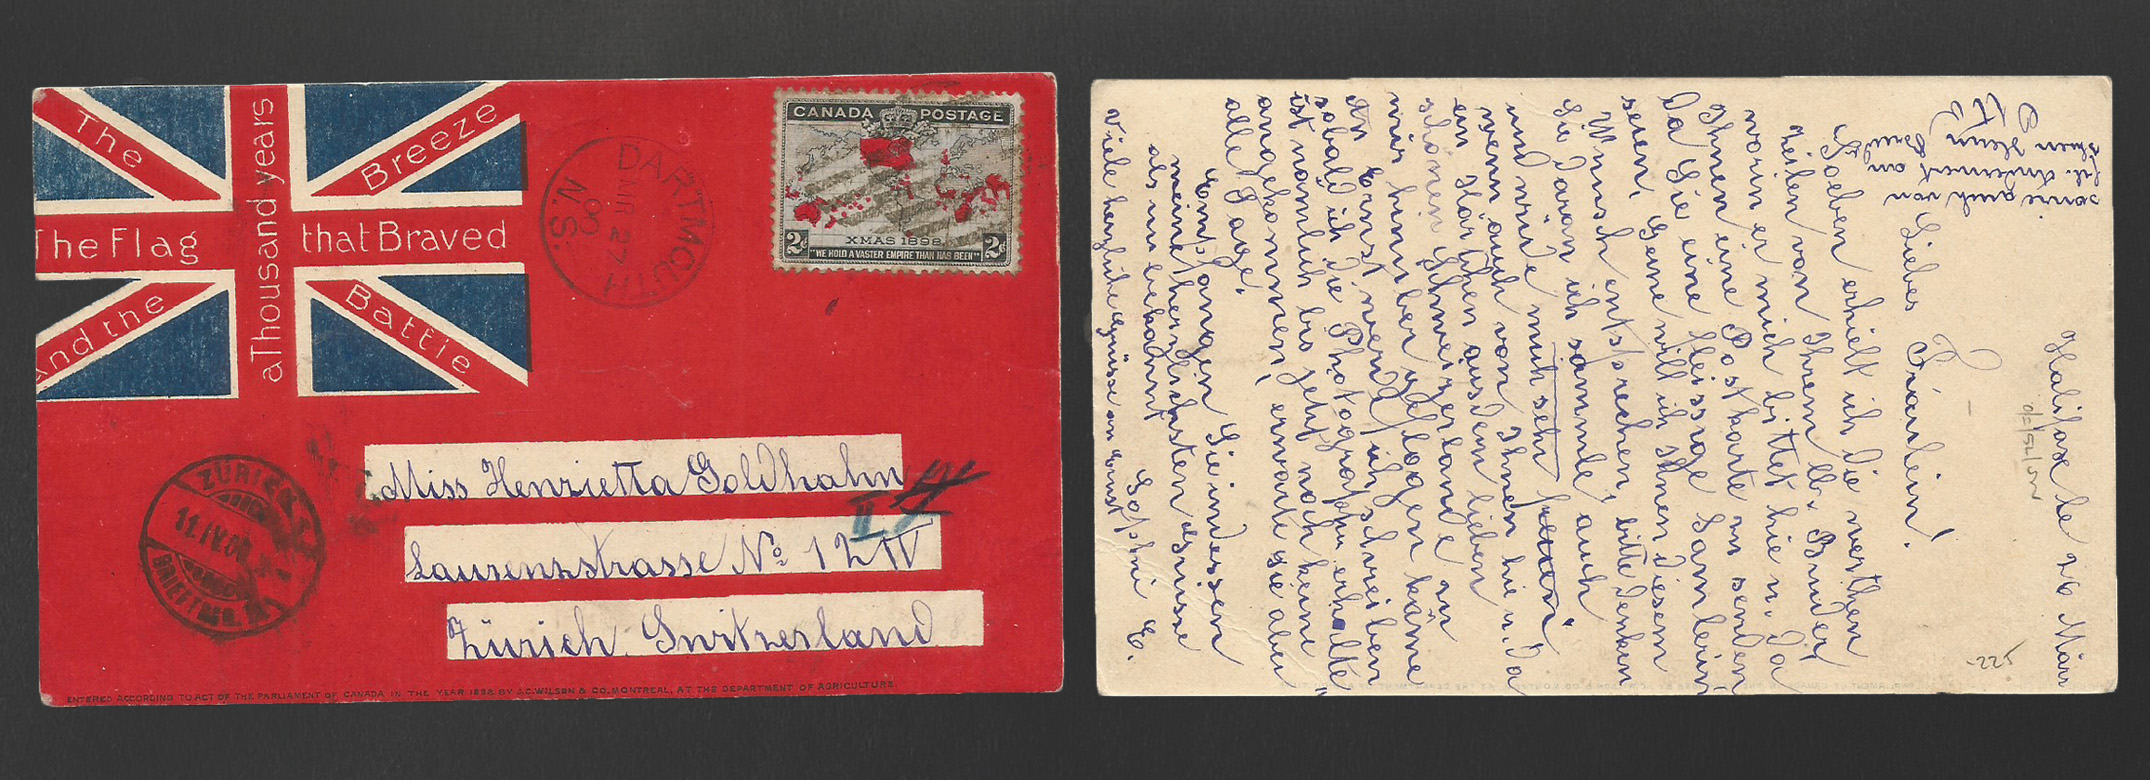 The Flag that Braved
a Thousand years
The Breeze
and the Battle
CANADA POSTAGE
XMAS 1898
2¢ 2¢
"WE HOLD A VASTER EMPIRE THAN HAS BEEN"
DARTMOUTH
MR 27
00
N.S.
ZÜRICH
11.IV.00
BRIEFTRG.
Miss Henrietta Goldhahn
Laurenzstrasse No. 12 IV
II
Zürich. Switzerland
ENTERED ACCORDING TO ACT OF THE PARLIAMENT OF CANADA IN THE YEAR 1898 BY J.C. WILSON & CO. MONTREAL, AT THE DEPARTMENT OF AGRICULTURE.
Halifax be 26 März
Liebes Fräulein!
Soeben erhielt ich die werthen
Zeilen von Ihrem lb. Bruder,
worin er mich bittet hie u. da
Ihnen eine Postkarte zu senden
Da Sie eine fleissige Sam̄lerin
seien, Gerne will ich Ihnen diesem
Wunsch entsprechen, bitte denken
Sie daran ich sammle auch
und würde mich sehr freuen
wenn auch von Ihnen hie u. da
ein Kärtchen aus dem lieben
schönen Schweizerlande zu
mir hinüber geflogen käme
An Ernst werde ich schreiben
sobald ich die Photographu erhalte
ist nämlich bis jetzt noch keine
angekommen, erwarte sie aber
alle Tage.
Empfangen Sie indessen
meine herzlichsten Grüsse
als unbekannt Sophni E.
Viele herzliche Grüsse an Ernst
sowie auch von
an
Ihren Herrn
-225